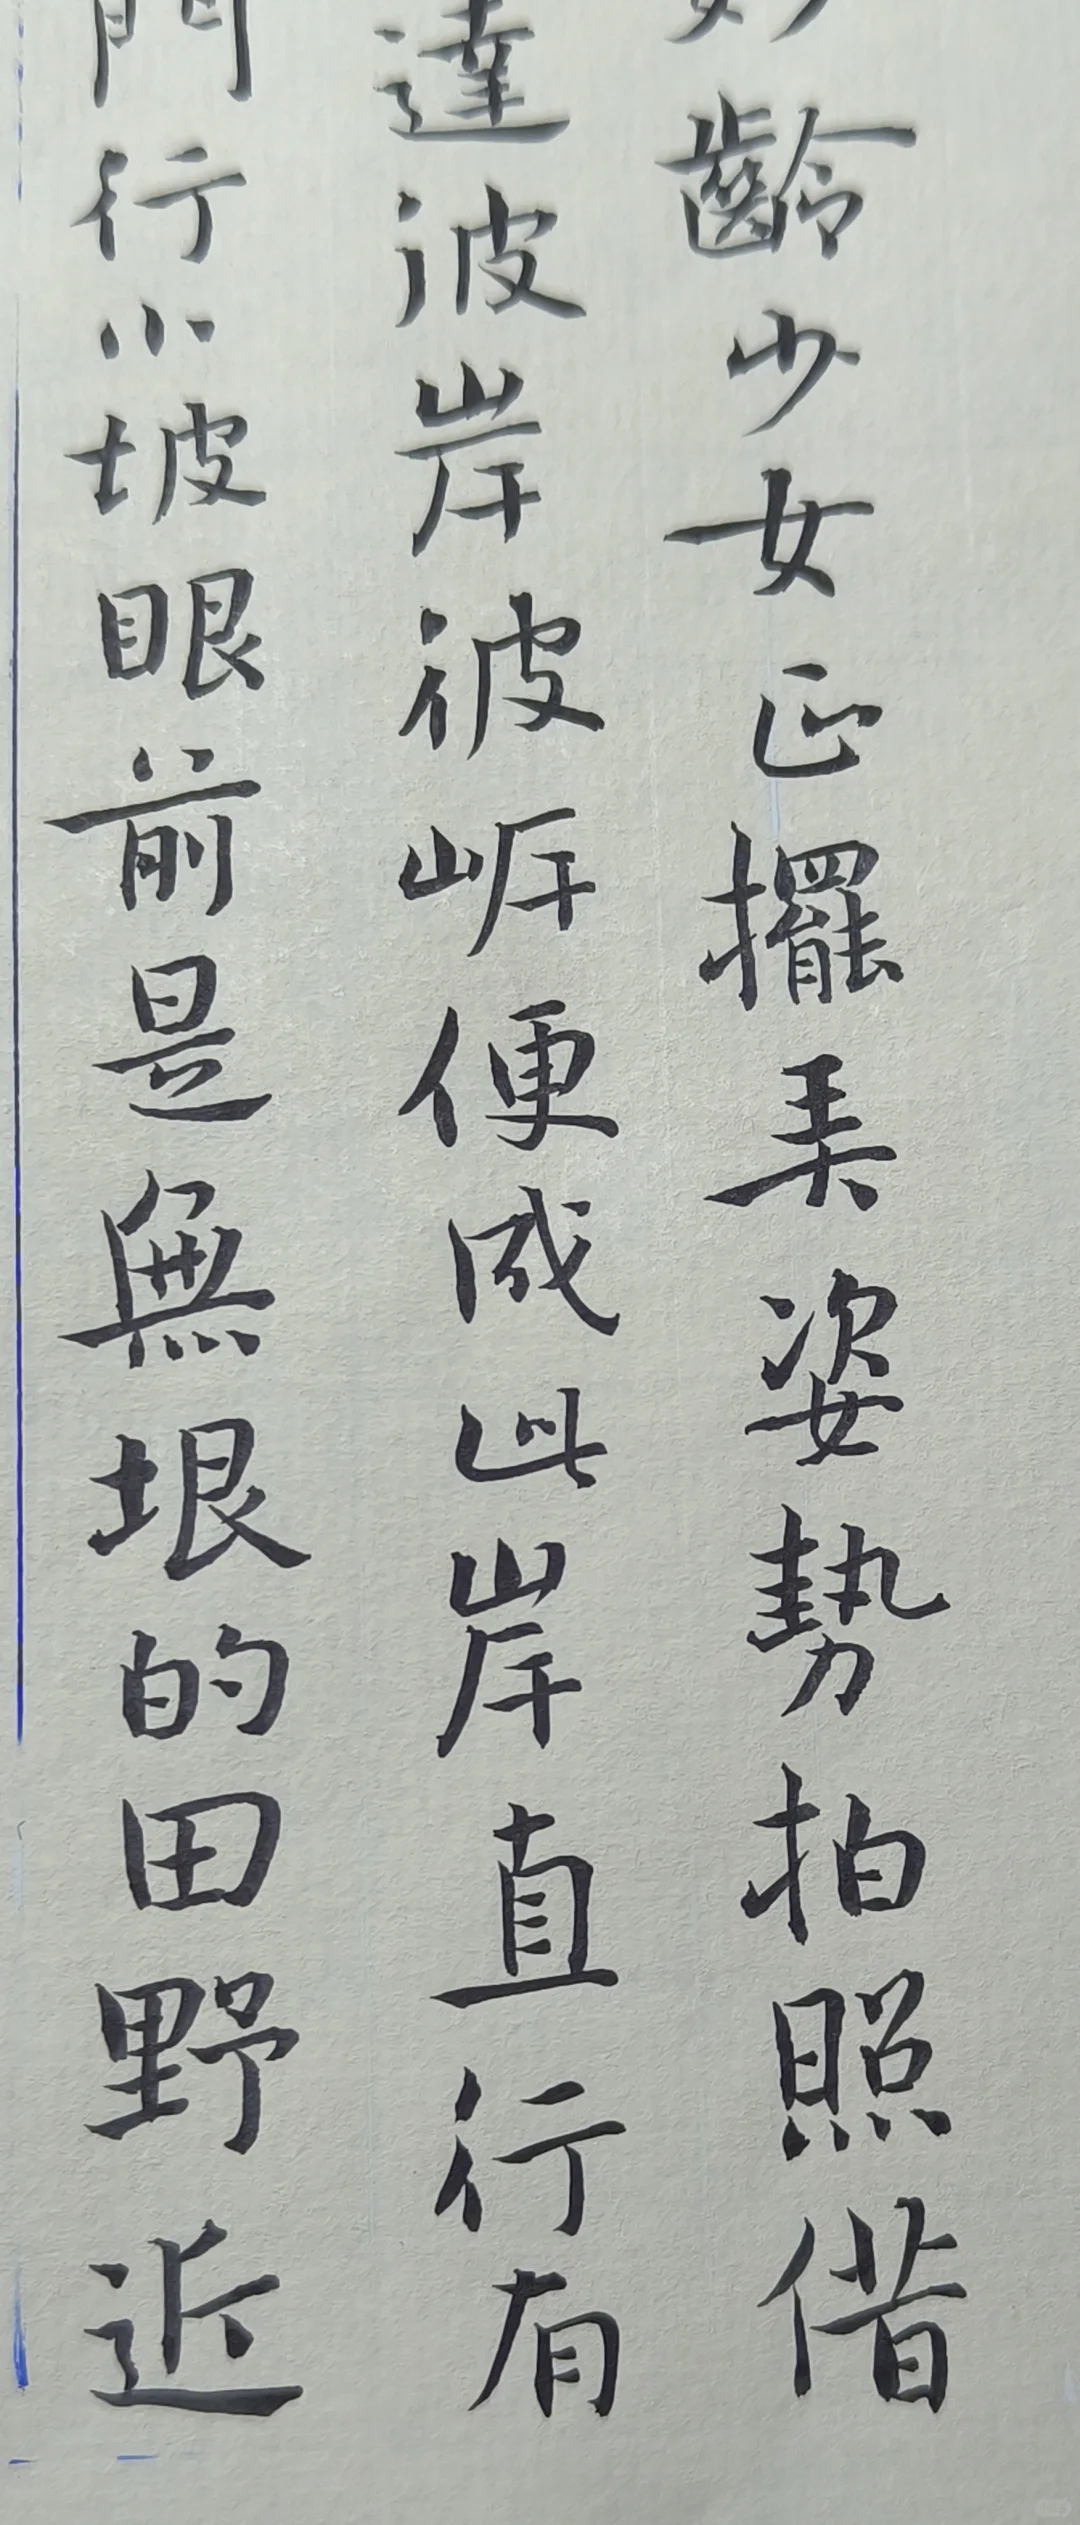 妙齡少女正擺弄姿勢拍照借
達彼岸彼岸便成此岸直行有
門行小坡眼前是無垠的田野近